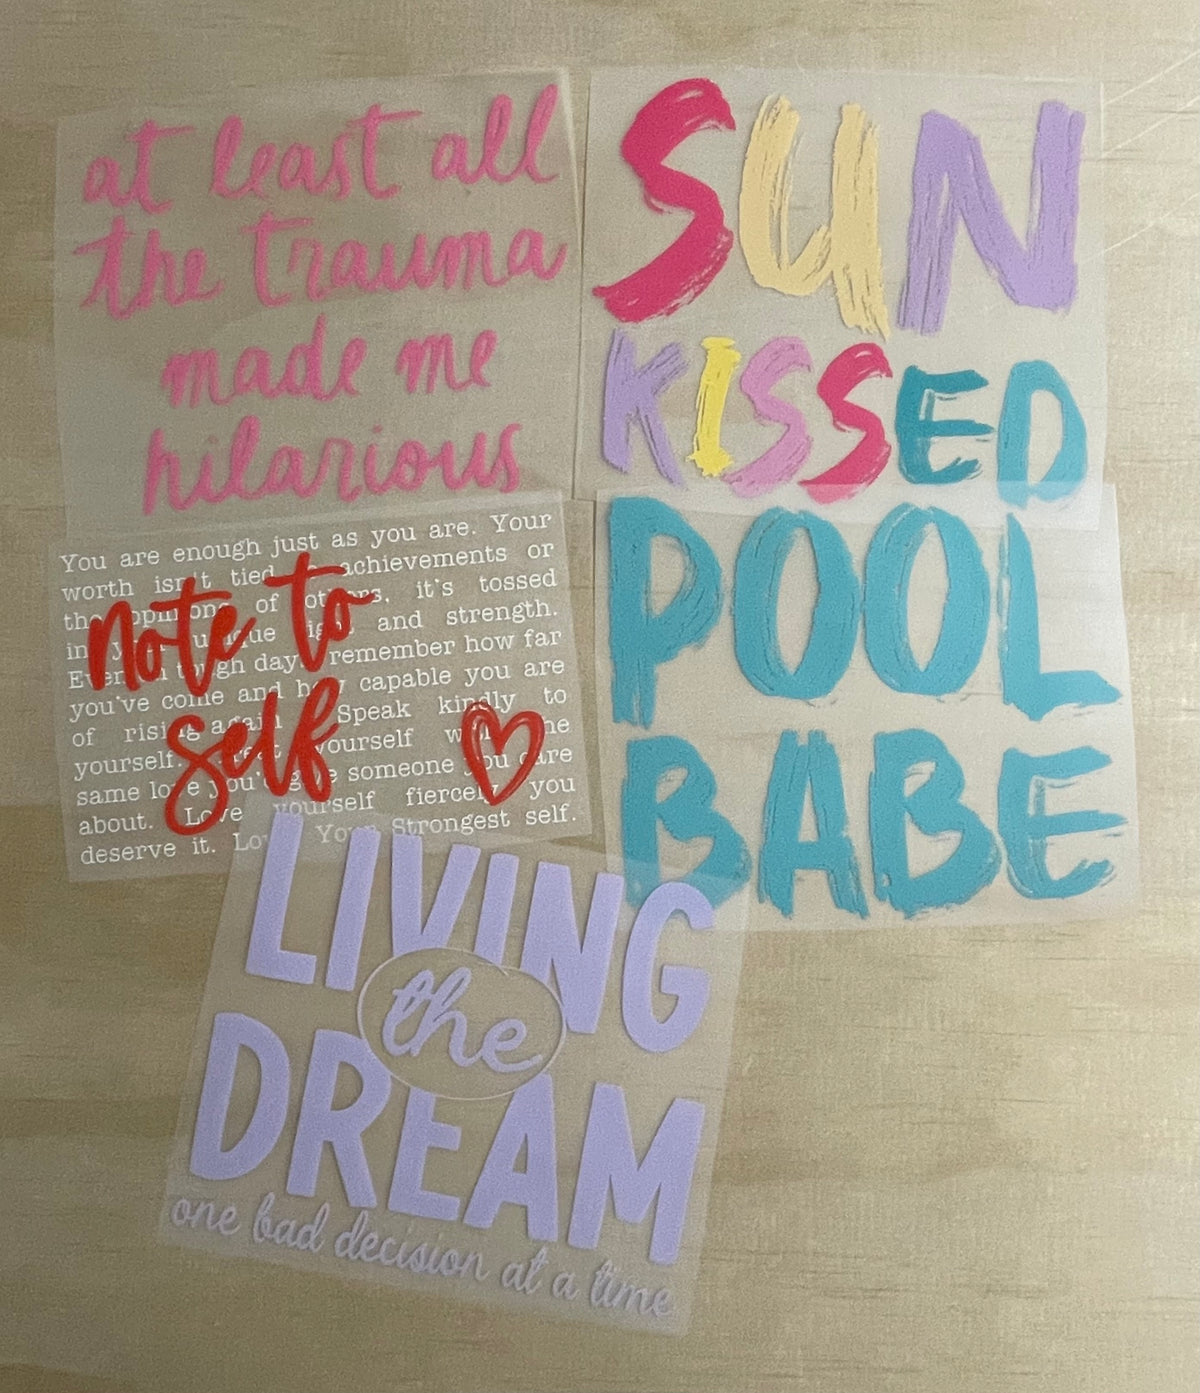 at least all
the trauma
made me
hilarious
SUN
KISSED
You are enough just as you are. Your
worth isn't tied achievements or
of it's tossed
and strength.
remember how far
you've come and capable you are
of rising again Speak kindly to
yourself. yourself
same love someone you care
about. Love yourself fiercely you
deserve it. Strongest self.
note to
self
POOL
BABE
LIVING
the
DREAM
one bad decision at a time